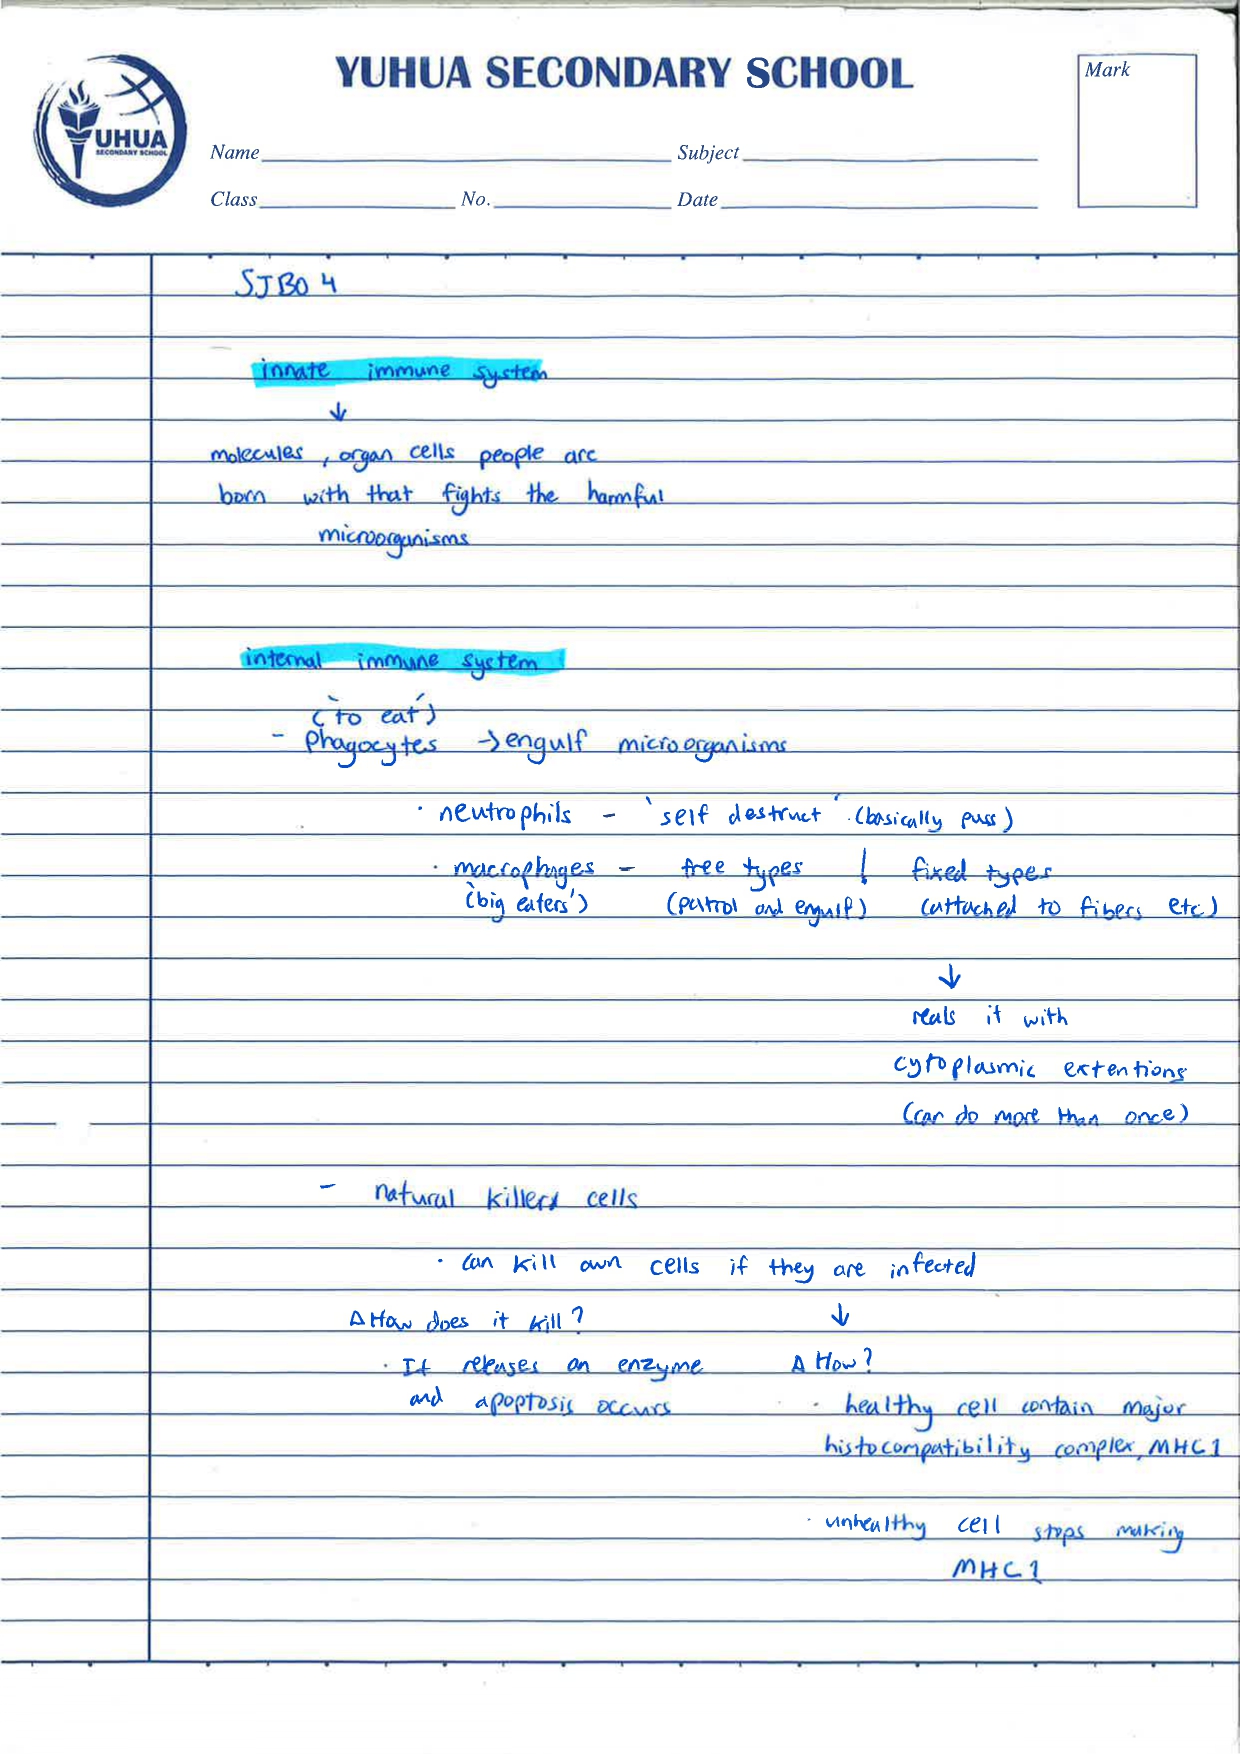 YUHUA SECONDARY SCHOOL
Mark
UHUA
SECONDARY SCHOOL
Name Subject
Class No. Date
SJBO 4
innate immune system
↓
molecules, organ cells people are
born with that fights the harmful
microorganisms
internal immune system
(`to eat´)
- phagocytes → engulf microorganisms
· neutrophils - `self destruct´ (basically puss)
· macrophages - free types | fixed types
(`big eaters') (patrol and engulf) (attached to fibers etc)
↓
reals it with
cytoplasmic extentions
(can do more than once)
- natural killers cells
· can kill own cells if they are infected
Δ How does it kill? ↓
· It releases an enzyme Δ How?
and apoptosis occurs · healthy cell contain major
histocompatibility complex, MHC1
· unhealthy cell stops making
MHC1